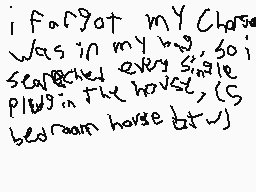 i fargot my Charge
was in my bag, so i
searched every single
plug in the house, (5
bedroom house btw)